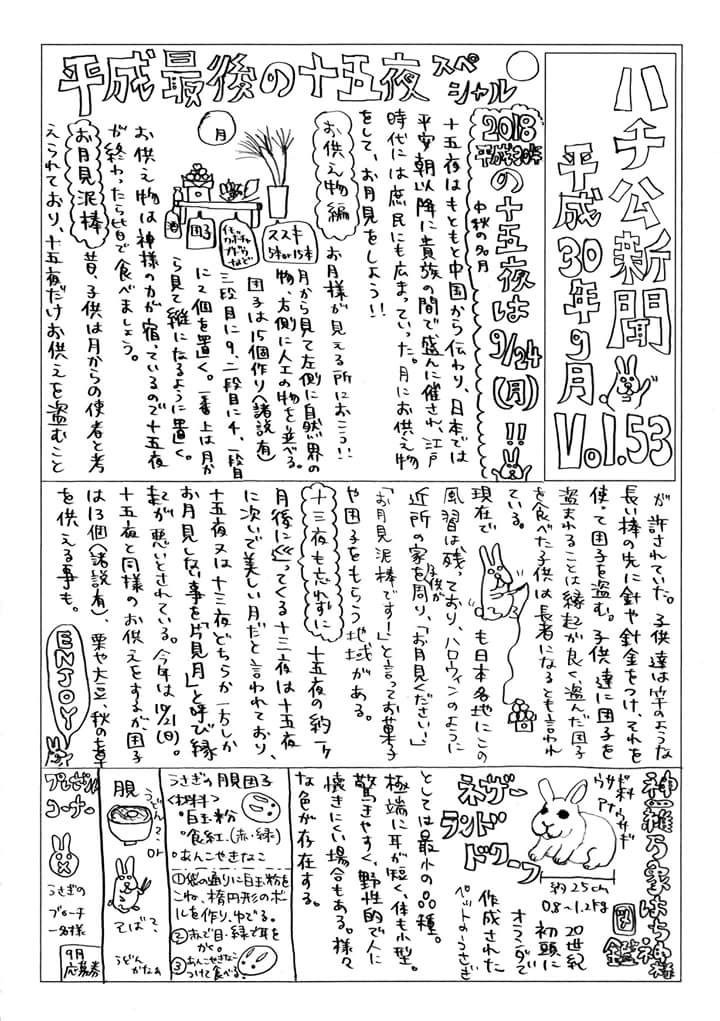 ハチ公新聞
平成30年9月
Vol.53
平成最後の十五夜スペシャル
2018
平成30年
の十五夜は9/24(月)!!
中秋の名月
十五夜はもともと中国から伝わり、日本では
平安朝以降に貴族の間で盛んに催され、江戸
時代には庶民にも広まっていった。月にお供え物
をして、お月見をしよう!!
お供え物編
お月様が見える所におこう!!
月から見て左側に自然界の
物、右側に人工の物を並べる。
団子は15個作り(諸説有)
三段目に9、二段目に4、一段目
に2個を置く。一番上は月か
ら見て縦になるように置く。
お供え物は神様の力が宿っているので十五夜
が終わったら皆で食べましょう。
月
ススキ
5本or15本
団子
酒
お月見泥棒
昔、子供は月からの使者と考
えられており、十五夜だけお供えを盗むこと
が許されていた。子供達は竿のような
長い棒の先に針や針金をつけ、それを
使って団子を盗む。子供達に団子を
盗まれることは縁起が良く、盗んだ団子
を食べた子供は長者になるとも言われ
ている。
現在でも日本各地にこの
風習は残っており、ハロウィンのように
子供が
近所の家を周り、「お月見ください」
「お月見泥棒ですー」と言ってお菓子
や団子をもらう地域がある。
十三夜も忘れずに
十五夜の約一ヶ
月後に巡ってくる十三夜は十五夜
に次いで美しい月だと言われており、
十五夜又は十三夜どちらか一方しか
お月見しない事を「片見月」と呼び縁
起が悪いとされている。今年は10/21(日)。
十五夜と同様のお供えをするが団子
は13個(諸説有)、栗や大豆、秋の幸
を供える事も。
ENJOY
神羅万象はち神羅
図鑑
ウサギ科
アナウサギ
ネザーランドドワーフ
約25cm
0.8〜1.2kg
20世紀
初頭に
オランダで
作成された
ペットのうさぎ
としては最小の品種。
極端に耳が短く、体も小型。
驚きやすく、野性的で人に
懐きにくい場合もある。様々
な色が存在する。
うさぎの月見団子
〈材料〉
・白玉粉
・食紅(赤・緑)
・あんこやきなこ
①袋の通りに白玉粉を
こね、楕円形のボー
ルを作り、ゆでる。
②赤で目・緑で耳を
かく。
③あんこやきなこ
つけて食べる。
月見
うどん?
or
そば?
うどん
かなぁ
プレゼントコーナー
うさぎの
ブローチ
一名様
9月
応募券